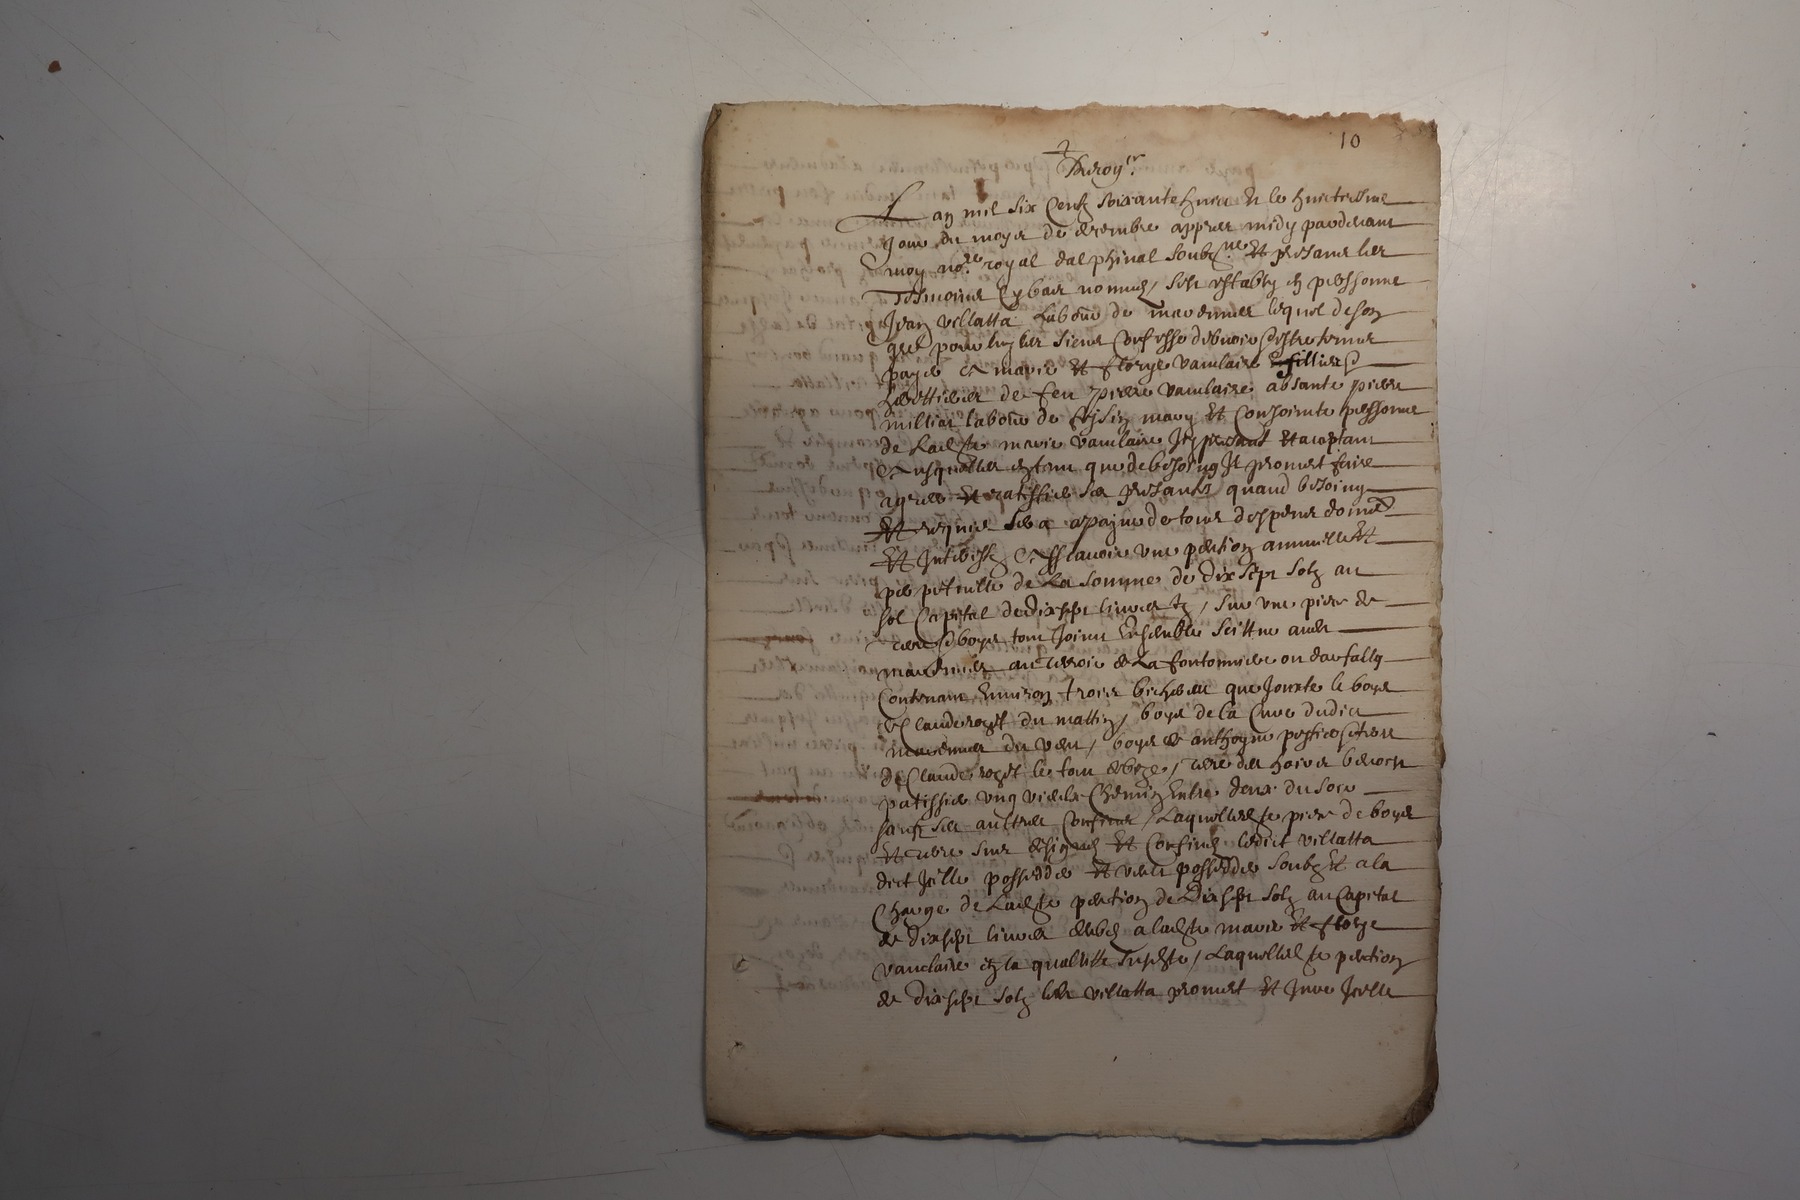 10
L an mil six centz soixante huict et le huictiesme
jour du moys de decembre appres midy pardevant
moy no.re royal dalphinal soubz.ne et presant les
tesmoins cy bas nommes / sest estably en personne
Jean villatta labour de marennes lequel de son
gre pour luy les siens confesse debvoir estre tenus
payer a marie et florye vauclaire fillies
heritieres de feu pierre vauclaire absante pierre
milliat labour de mary et conjointe personne
de ladite marie vauclaire icy presant et aceptant
ausquelles en tant que de besoing Il promet faire
agreer et ratiffier ses presants quand besoing
et requis sera a payne de tous despens
et Interestz Assavoir une pention annuelle et
perpetuelle de la somme de dix sept solz au
sol capital de dixsept livres tz / sur une piece de
terre boys tout joint Ensemble scittue audit
marennes au terroir de la fontonniere ou
contenant Environ trois bicherees que jouxte le boys
de Claude du mattin / boys de la cure dudict
marennes du vent / boys de anthoyne
de Claude le tout de bize / terre des hoirs benoict
patissier ung vieulx chemin Entre deux du soir
sauf ses aultres confins / laquelle dite piece de boys
et terre sus designes et confines ledict villatta
dict Icelle posseder et veult posseder soubz et a la
charge de ladite pention de dixsept solz au capital
de dixsept livres debvs a ladite marie et florye
vauclaire en la quallitte susdite / laquelle dite pention
de dixsept solz led villatta promet et jure Icelle